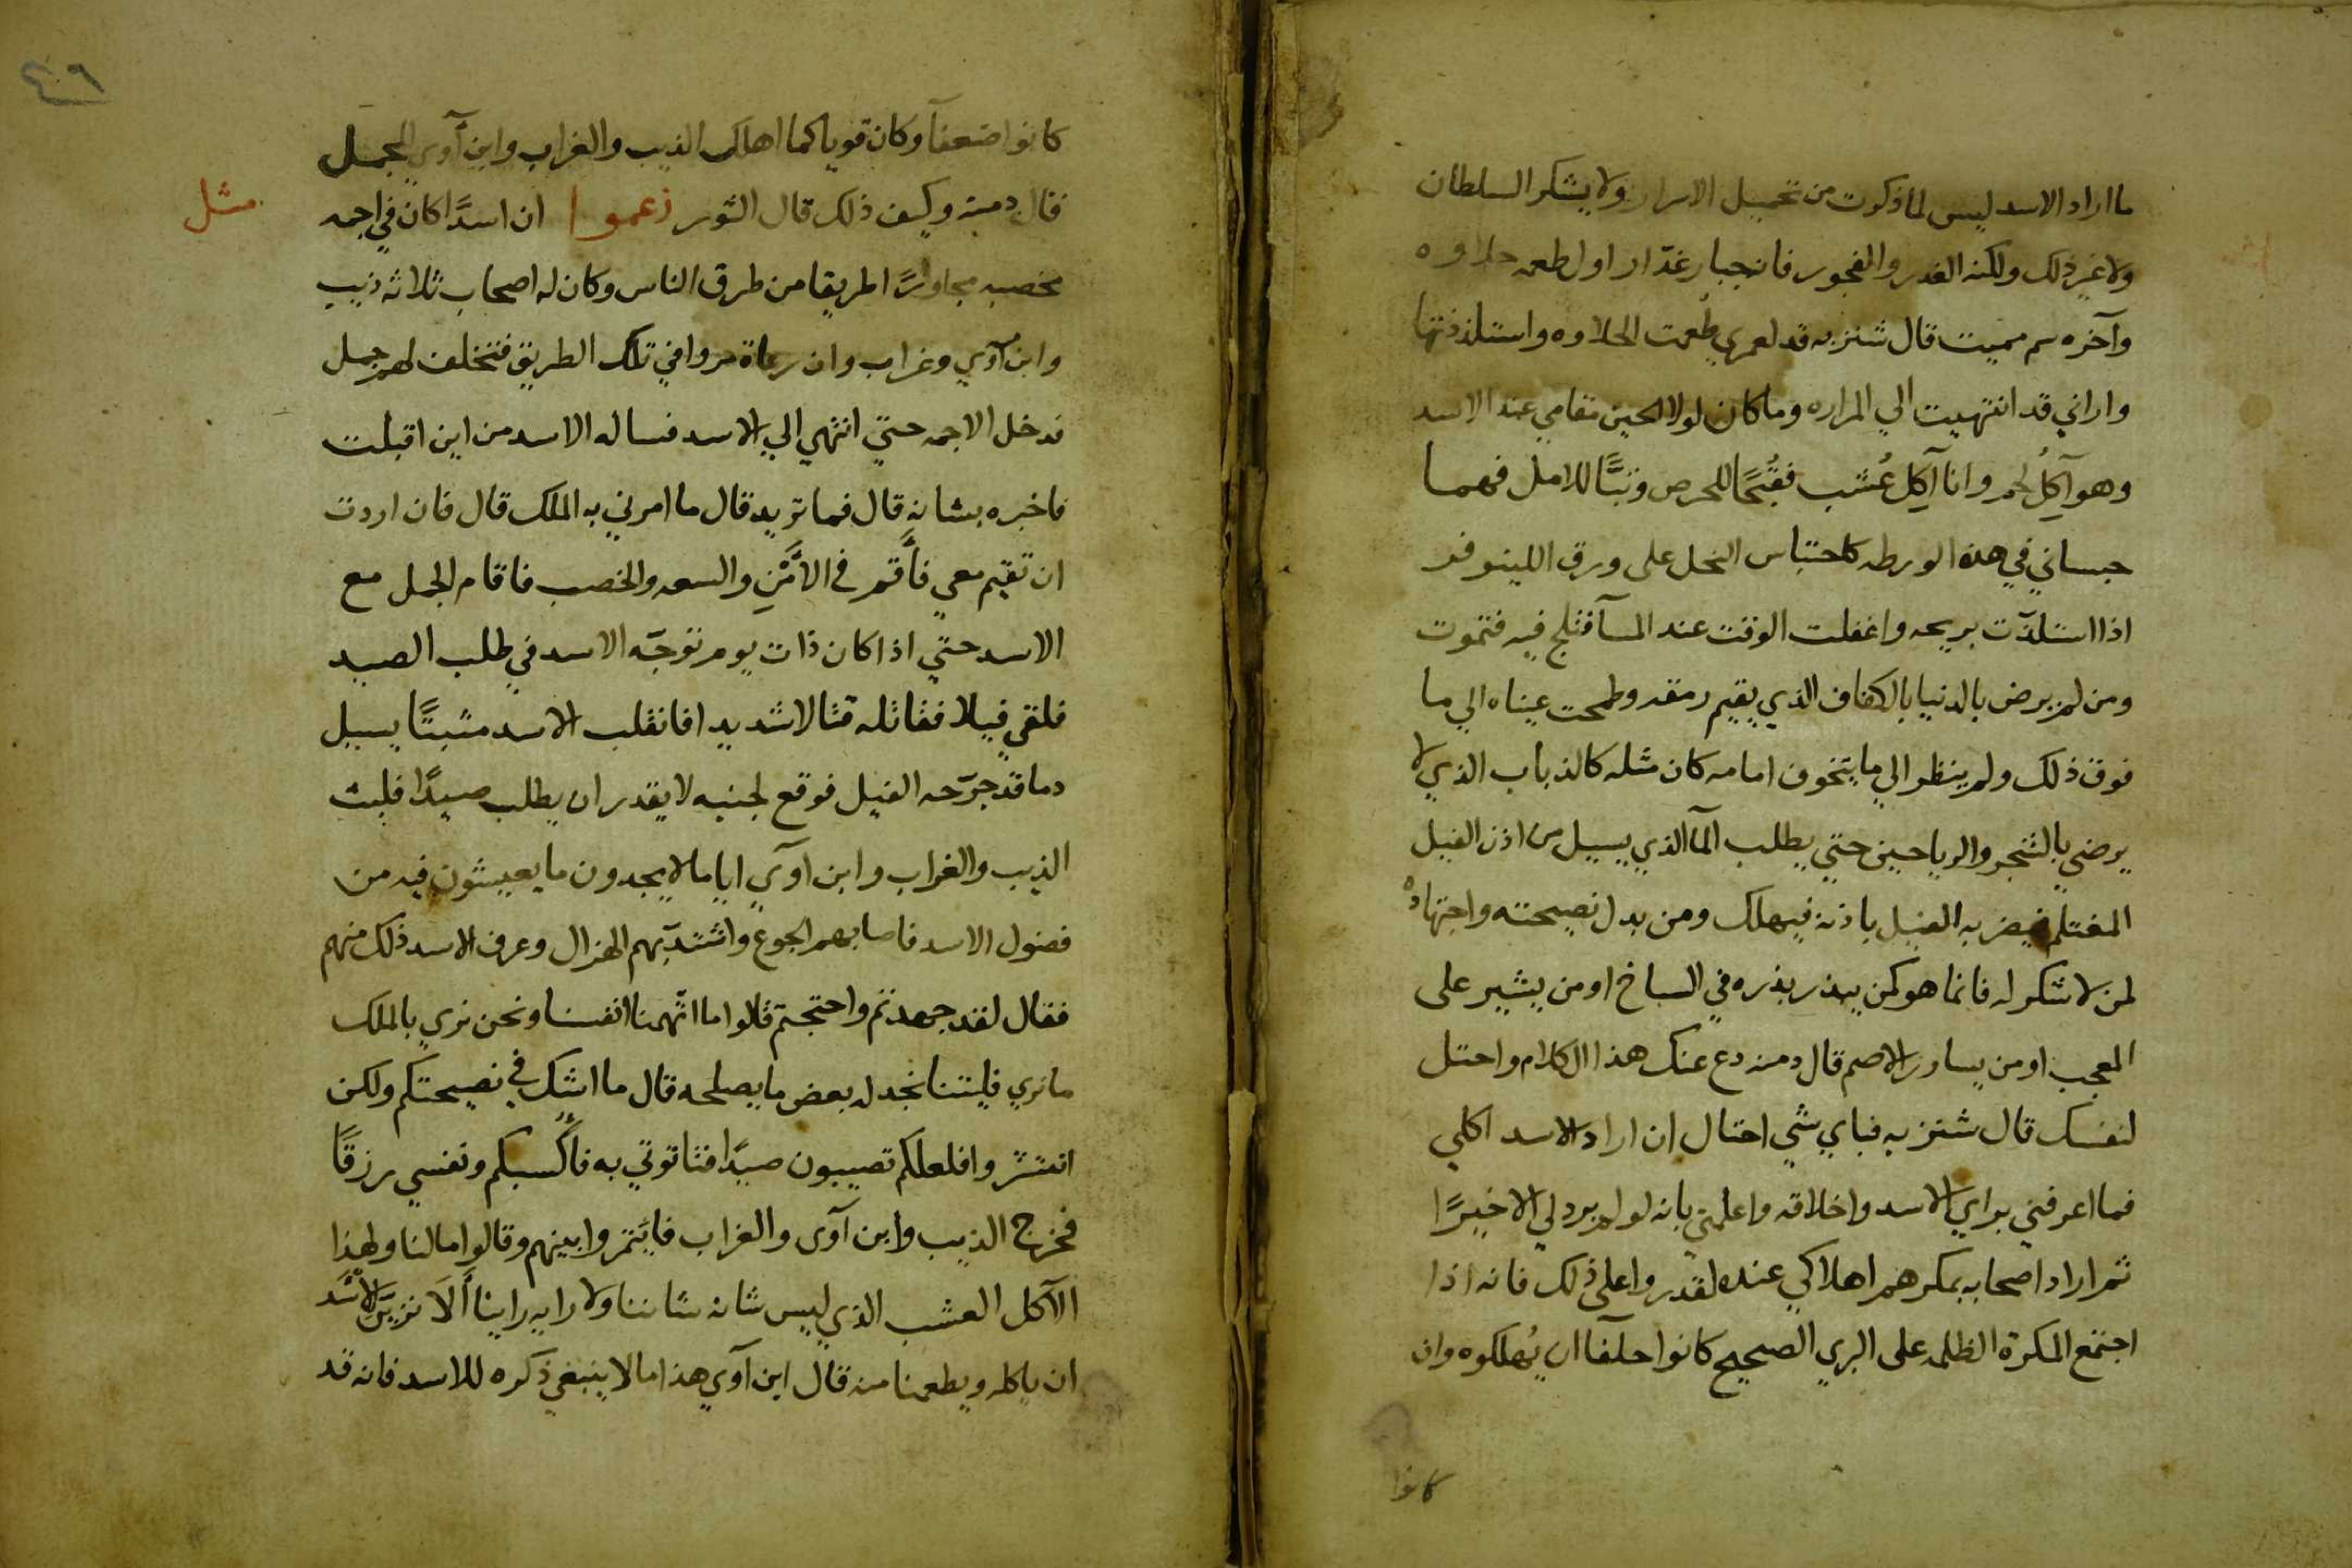 ما اراد الاسد ليس لما ذكرت من تحميل الاسرار ولا يشكر السلطان
ولا غير ذلك ولكنه الغدر والفجور فانه جبار غدّار اول طعمه حلاوه
وآخره سم مميت قال شنزبه قد لعمري طُعمت الحلاوه واستلذذتها
واراني قد انتهيت الي المراره وما كان لولا الحين مقامي عند الاسد
وهو آكِلُ لحم وانا آكِل عُشب فقُبْحًا للحرص وتبًّا للامل فهما
حبساني في هذه الورطه كاحتباس النحل على ورق اللينوفر
اذا استلذّت بريحه واغفلت الوقت عند المسآ فتلج فيه فتموت
ومن لم يرض بالدنيا بالكفاف الذي يقيم رمقه وطمحت عيناه الي ما
فوق ذلك ولم ينظر الي ما يتخوف امامه كان مثله كالذباب الذي لا
يرضي بالشجر والرياحين حتي يطلب المآ الذي يسيل من اذن الفيل
المغتلم فيضربه الفيل باذنه فيهلك ومن بدل نصيحته واجتهاده
لمن لا شكر له فانما هو كمن يبذر بذره في السباخ او من يشير على
المعجب او من يسارر الاصم قال دمنه دع عنك هذا الكلام واحتل
لنفسك قال شنزبه فباي شي احتال ان اراد الاسد اكلي
فما اعرفني براي الاسد واخلاقه واعلمني بانه لو لم يرد لي الا خيرًا
ثم اراد اصحابه بمكرهم اهلاكي عنده لقدروا على ذلك فانه اذا
اجتمع المكرة الظلمه على البري الصحيح كانوا حلفآ ان يُهلكوه وان
كانوا
٤٦
كانوا ضعفآ وكان قويا كما اهلك الذيب والغراب وابن آوي الجمل
قال دمنه وكيف ذلك قال الثور زعموا ان اسدًا كان في اجمه
مثل
مخصبه مجاورًا لطريق من طرق الناس وكان له اصحاب ثلاثه ذيب
وابن آوي وغراب وان رعاة مروا في تلك الطريق فتخلف لهم جمل
فدخل الاجمه حتي انتهي الي الاسد فساله الاسد من اين اقبلت
فاخبره بشانه قال فما تريد قال ما امرني به الملك قال فان اردت
ان تقيم معي فأقم في الأَمْنِ والسعه والخصب فاقام الجمل مع
الاسد حتي اذا كان ذات يوم توجّه الاسد في طلب الصيد
فلقي فيلا فقاتله قتالا شديدا فانقلب الاسد مثبتًا يسيل
دما قد جرّحه الفيل فوقع لجنبه لا يقدر ان يطلب صيدًا فلبث
الذيب والغراب وابن اوآي اياما لا يجدون ما يعيشون فيه من
فضول الاسد فاصابهم الجوع واشتدّ بهم الهزال وعرف الاسد ذلك منهم
فقال لقد جهدتم واحتجتم قالوا ما اتّهمنا انفسنا ونحن نري بالملك
ما نري فليتنا نجد له بعض ما يصلحه قال ما اشك في نصيحتكم ولكن
انتشروا فلعلكم تصيبون صيدًا فتاتوني به فأكسبكم ونفسي رزقًا
فخرج الذيب وابن آوى والغراب فايتمروا بينهم وقالوا ما لنا ولهذا
الآكل العشب الذي ليس شانه شاننا ولا رايه راينا أَلَا نزيّن للاسد
ان ياكله ويطعمنا منه قال ابن آوي هذا ما لا ينبغي ذكره للاسد فانه قد